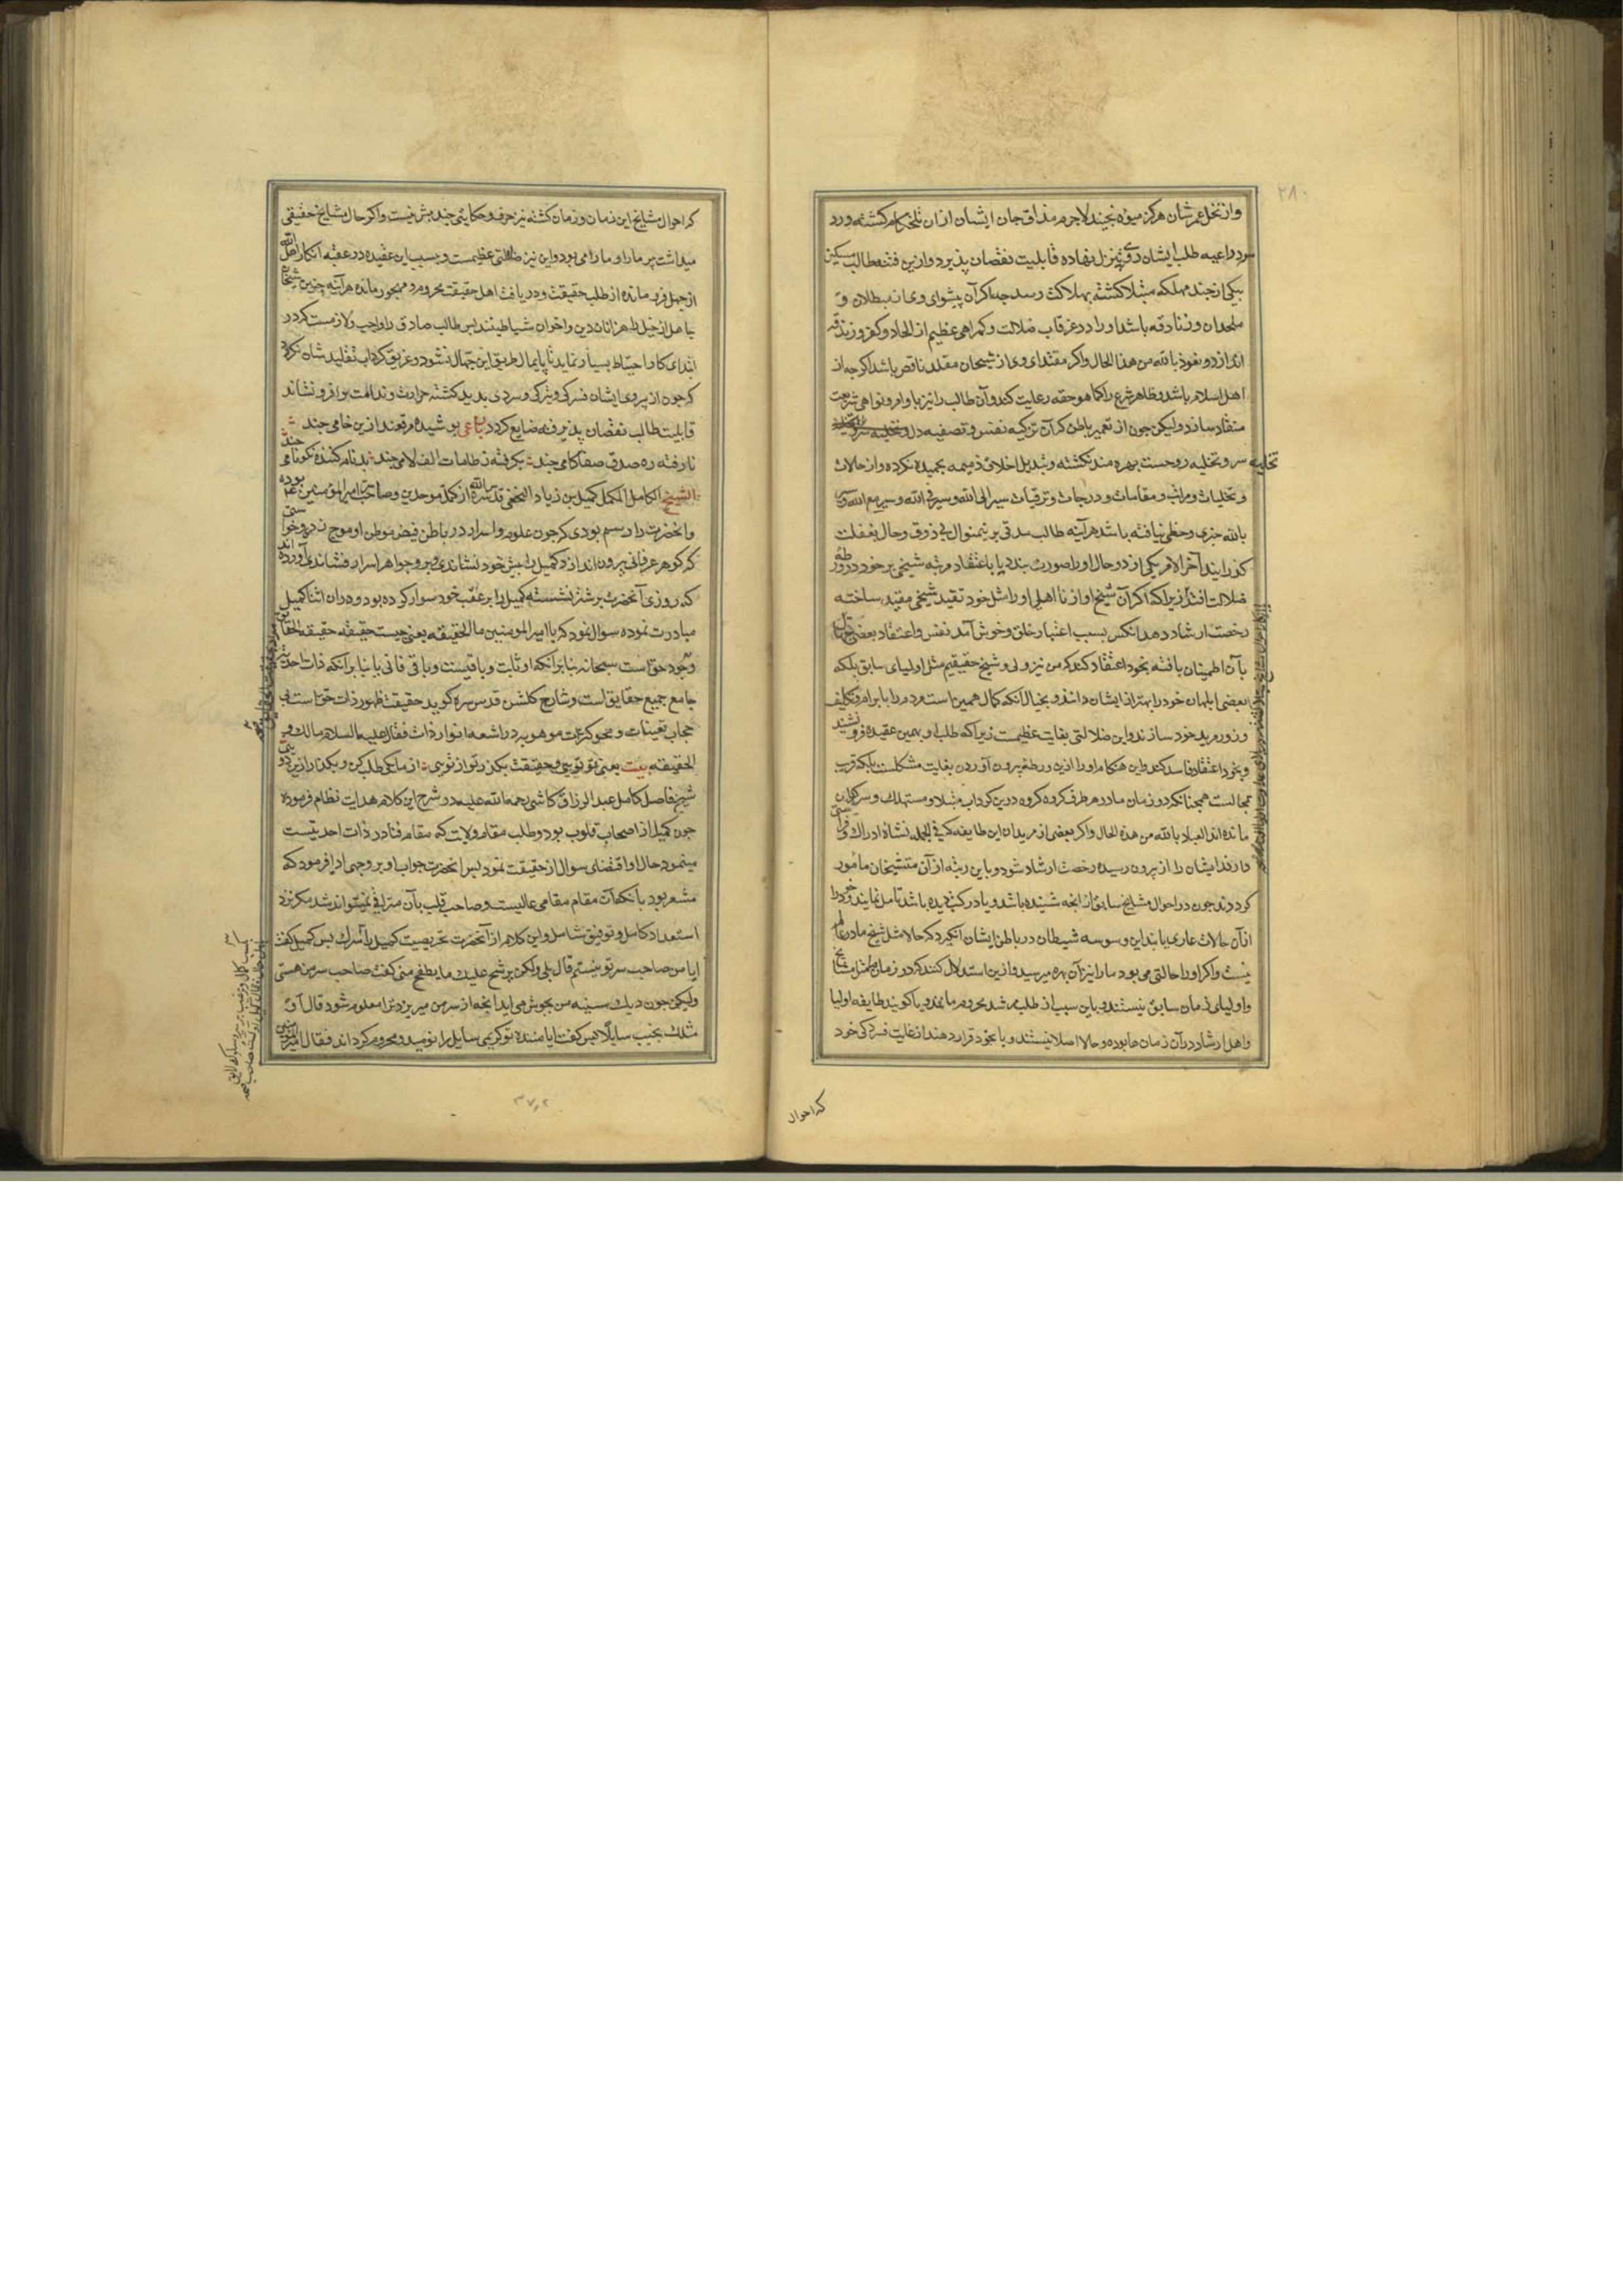 ۲۸۰
واز نخل عمرشان هرکز میوه نچیند لاجرم مذاق جان ایشان ازان تلخکام کشته ودرد
سود داعیه طلب ایشان روی بتنزل نهاده قابلیت نقصان پذیرد وازین فتنه طالب مسکین
بیکی از چند مهلکه مبتلا کشته بهلاکت رسد چه اکر آن پیشوای وی از مبطلان و
ملحدان وزنادقه باشد اورا در غرقاب ضلالت وکمراهی عظیم از الحاد وکفر وزندقه
اندازد ونعوذ بالله من هذا الحال واکر مقتدای وی از شیخان مقلد ناقص باشد اکرچه از
اهل اسلام باشد وظاهر شرع را کما هو حقه رعایت کند وآن طالب را نیز باوامر ونواهی شریعت
منقاد سازد ولیکن چون از تعمیر باطن که آن تزکیه نفس وتصفیه دل
تخلیه سر وتحلیه روحست بهره مند نکشته وتبدیل اخلاق ذمیمه بحمیده نکرده واز حالات
وتجلیات ومراتب ومقامات ودرجات وترقیات سیر الی الله وسیر فی الله وسیر مع الله وسیر
بالله خبری وحظی نیافته باشد هرآینه طالب مدتی برینمنوال بی ذوق وحال بغفلت
کذراند آخر الامر یکی از دو حال اورا صورت بندد یا باعتقاد مرتبه شیخی بر خود در ورطه
ضلالت افتد زیرا که اکر آن شیخ او از نااهلی اورا مثل خود بقید شیخی مقید ساخته
رخصت ارشاد دهد انکس بسبب اعتبار خلق وخوش آمد نفس واعتقاد بعضی جهال
بآن اطمینان یافته بخود اعتقاد کند که من نیز ولی وشیخ حقیقیم مثل اولیای سابق بلکه
بعضی ابلهان خود را بهتر از ایشان دانند وبخیال آنکه کمال همین است ومردم را بابرام وتکلیف
وزور مرید خود سازند واین ضلالتی بغایت عظیمست زیرا که طلب او بهمین عقیده فرو نشیند
وبخود اعتقاد فاسد کند واین هنکام اورا ازین ورطه بیرون آوردن بغایت مشکلست بلکه قریب
بمحالست همچنانکه در زمان ما در هر طرف کروه کروه درین کرداب مبتلا ومستهلک وسرکردان
مانده اند العیاذ بالله من هذه الحال واکر بعضی از مریدان این طایفه که فی الجمله نشاۀ ادراک وفراستی
دارند ایشان را از پیرون رسیده رخصت ارشاد شود وباین رتبه از آن متشیخان مامور
کردند چون در احوال مشایخ سابق از انچه شنیده باشد ویا در کتب دیده باشد تامل نمایند وخود را
از آن حالات عاری یابند این وسوسه شیطان در باطن ایشان انکیزد که حالا مثل شیخ ما در عالم
نیست واکر اورا حالتی می بود ما را نیز آن بهره میرسید وازین استدلال کنند که در زمان ما مثل مشایخ
واولیای زمان سابق نیستند وباین سبب از طلب مرشد محروم مانند ویا کویند طایفه اولیا
واهل ارشاد در آن زمان ها بوده وحالا اصلا نیستند ویا بخود قرار دهند از غایت فسردکی خود
که احوال
که احوال مشایخ این زمان وزمان کشته نیز حرف وحکایتی چند بیش نیست واکر حال مشایخ حقیقی
میداشت پر ما را وما را می بود واین نیز ضلالتی عظیمست وبسبب این عقیده در عقبه انکار اهل الله
از جهل فرو مانده از طلب حقیقت ودریافت اهل حقیقت محروم ومهجور مانده هرآینه چنین شیخان
جاهل از خیل راهزنان دین واخوان شیاطینند پس طالب صادق را واجب ولازمست که در
ابتدای کار احتیاط بسیار نماید تا پایمال طریق این جهال نشود وغریق کرداب تقلید شان نکردد
که چون از پیروی ایشان فسردکی وتیرکی وسردی بدید کشته حرارت وندامت بر او فرو نشاند
قابلیت طالب نقصان پذیرفته ضایع کردد رباعی پوشیده مرقعند ازین خامی چند
نارفته ره صدق وصفا کامی چند بکرفته ز طامات الف لامی چند بدنام کننده نکونامی چند
الشیخ الکامل المکمل کمیل بن زیاد النخعی قدس الله سره از کمل موحدین وصاحب سر امیر المؤمنین ع م بوده
وانحضرت را رسم بودی که چون علوم واسرار در باطن فیض موطن او موج زدی وخواستی
که کوهر عرفانی بیرون اندازد کمیل را پیش خود نشاندی وبر وجواهر اسرار فشاندی آورده اند
که روزی آنحضرت بر شتر نشسته کمیل را بر عقب خود سوار کرده بود ودران اثنا کمیل
مبادرت نموده سوال نمود که یا امیر المومنین ما الحقیقه یعنی چیست حقیقه حقیقه الحقایق
وجود حق است سبحانه بنا بر آنکه او ثابت وباقیست وباقی فانی یا بنا بر آنکه ذات احدیت
جامع جمیع حقایق است وشارح کلشن قدس سره کوید حقیقت ظهور ذات حق است بی
حجاب تعینات ومحو کثرت موهومه در اشعه انوار ذات فقال علیه السلام مالک و
الحقیقه بیت یعنی تو تویی وحقیقت بکذر تو از تویی از ما کی طلب کن وبکذار ازین دویی
شیخ فاضل کامل عبد الرزاق کاشی رحمه الله علیه در شرح این کلام هدایت نظام فرموده
چون کمیل از اصحاب قلوب بود وطلب مقام ولایت که مقام فنا در ذات احدیتست
مینمود حال او اقتضای سوال از حقیقت نمود پس انحضرت جواب او بر وجهی ادا فرمود که
مشعر بود بآنکه آن مقام مقامی عالیست وصاحب قلب بآن مترقی نمیتواند شد مکر نزد
استعداد کامل وتوفیق شامل واین کلام از آنحضرت تحریصیت کمیل را پس کمیل کفت
ایا من صاحب سر تو نیستم قال بلی ولکن یرشح علیک ما یطفح منی کفت صاحب سر من هستی
ولیکن چون دیک سینه من بجوش می اید انچه از سر من میریزد ترا معلوم شود قال أو
مثلک یخیب سایلا پس کفت ایا مانند تو کریمی سایل را نومید ومحروم کرداند فقال امیر المومنین